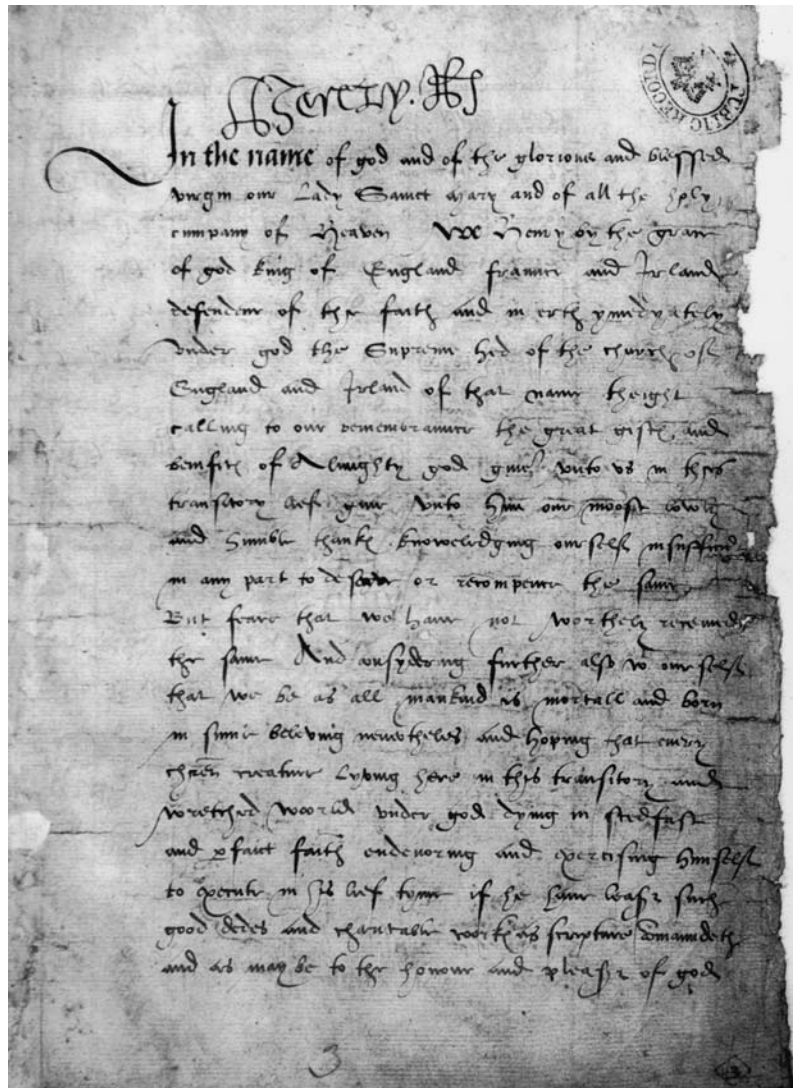 Henry R
PUBLIC RECORD
In the name of god and of the glorious and blessed
virgin our Lady Sainct Mary and of all the holy
cumpany of Heaven We Henry by the grace
of god King of England fraunce and Irland
defendour of the faith and in erth ymedyately
under god the Supreme hed of the church of
England and Irland of that name theight
calling to our remembraunce the great giftes and
benifites of Almighty god given unto us in this
transitory lief give unto Him our moost lowly
and Humble thankes knowledging our self insufficient
in any part to deserve or recompence the same
But feare that we have not worthely received
the same And considering further also with our self
that we be as all mankind is mortall and born
in sinne beleving nevertheles and hoping that every
christien creature lyving here in this transitory and
wretched woorld under god dying in stedfast
and perfaict faith endevoring and exercising Himself
to execute in his lief tyme if he have leasr such
good dedes and charitable workes as scripture commandeth
and as may be to the honour and pleasr of god
3